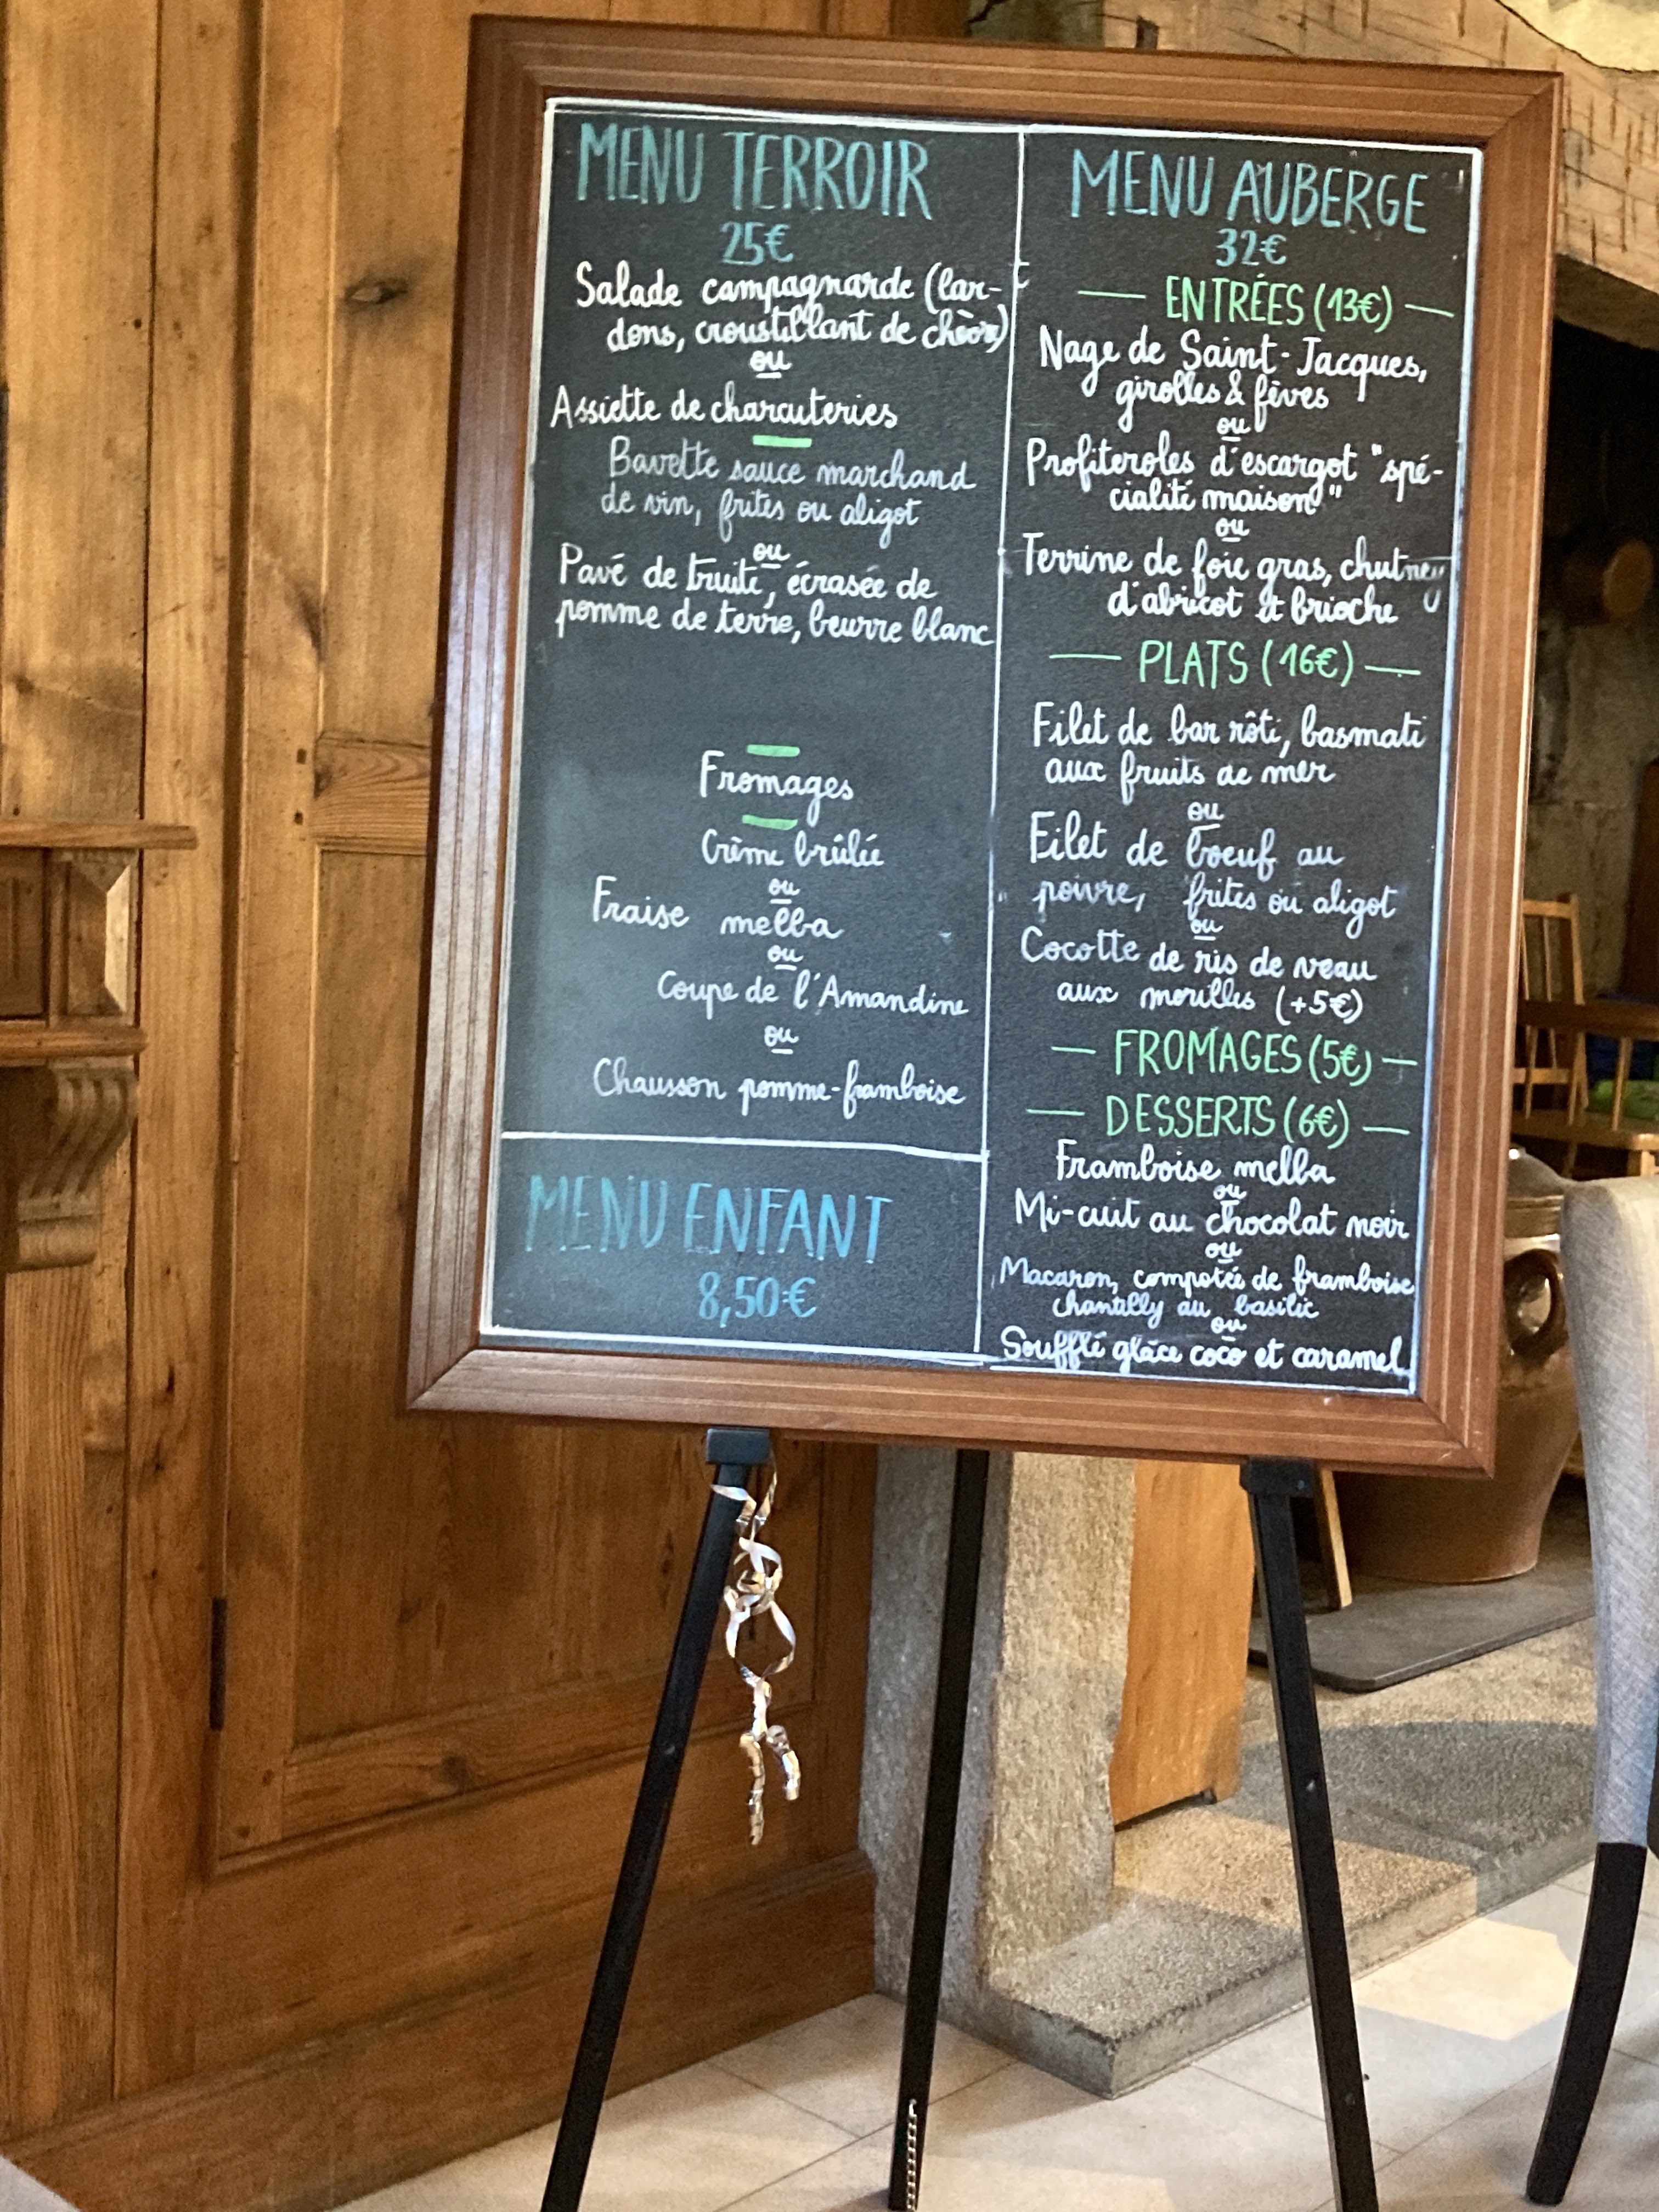 MENU TERROIR
25€
Salade campagnarde (lar-
dons, croustillant de chèvre)
ou
Assiette de charcuteries
Bavette sauce marchand
de vin, frites ou aligot
ou
Pavé de truite, écrasée de
pomme de terre, beurre blanc
Fromages
Crème brûlée
ou
Fraise melba
ou
Coupe de l'Amandine
ou
Chausson pomme-framboise
MENU ENFANT
8,50€
MENU AUBERGE
32€
ENTRÉES (13€)
Nage de Saint-Jacques,
girolles & fèves
ou
Profiteroles d'escargot "spé-
cialité maison"
ou
Terrine de foie gras, chutney
d'abricot et brioche
PLATS (16€)
Filet de bar rôti, basmati
aux fruits de mer
ou
Filet de boeuf au
poivre, frites ou aligot
ou
Cocotte de ris de veau
aux morilles (+5€)
FROMAGES (5€)
DESSERTS (6€)
Framboise melba
ou
Mi-cuit au chocolat noir
ou
Macaron, compotée de framboise
chantilly au basilic
ou
Soufflé glace coco et caramel